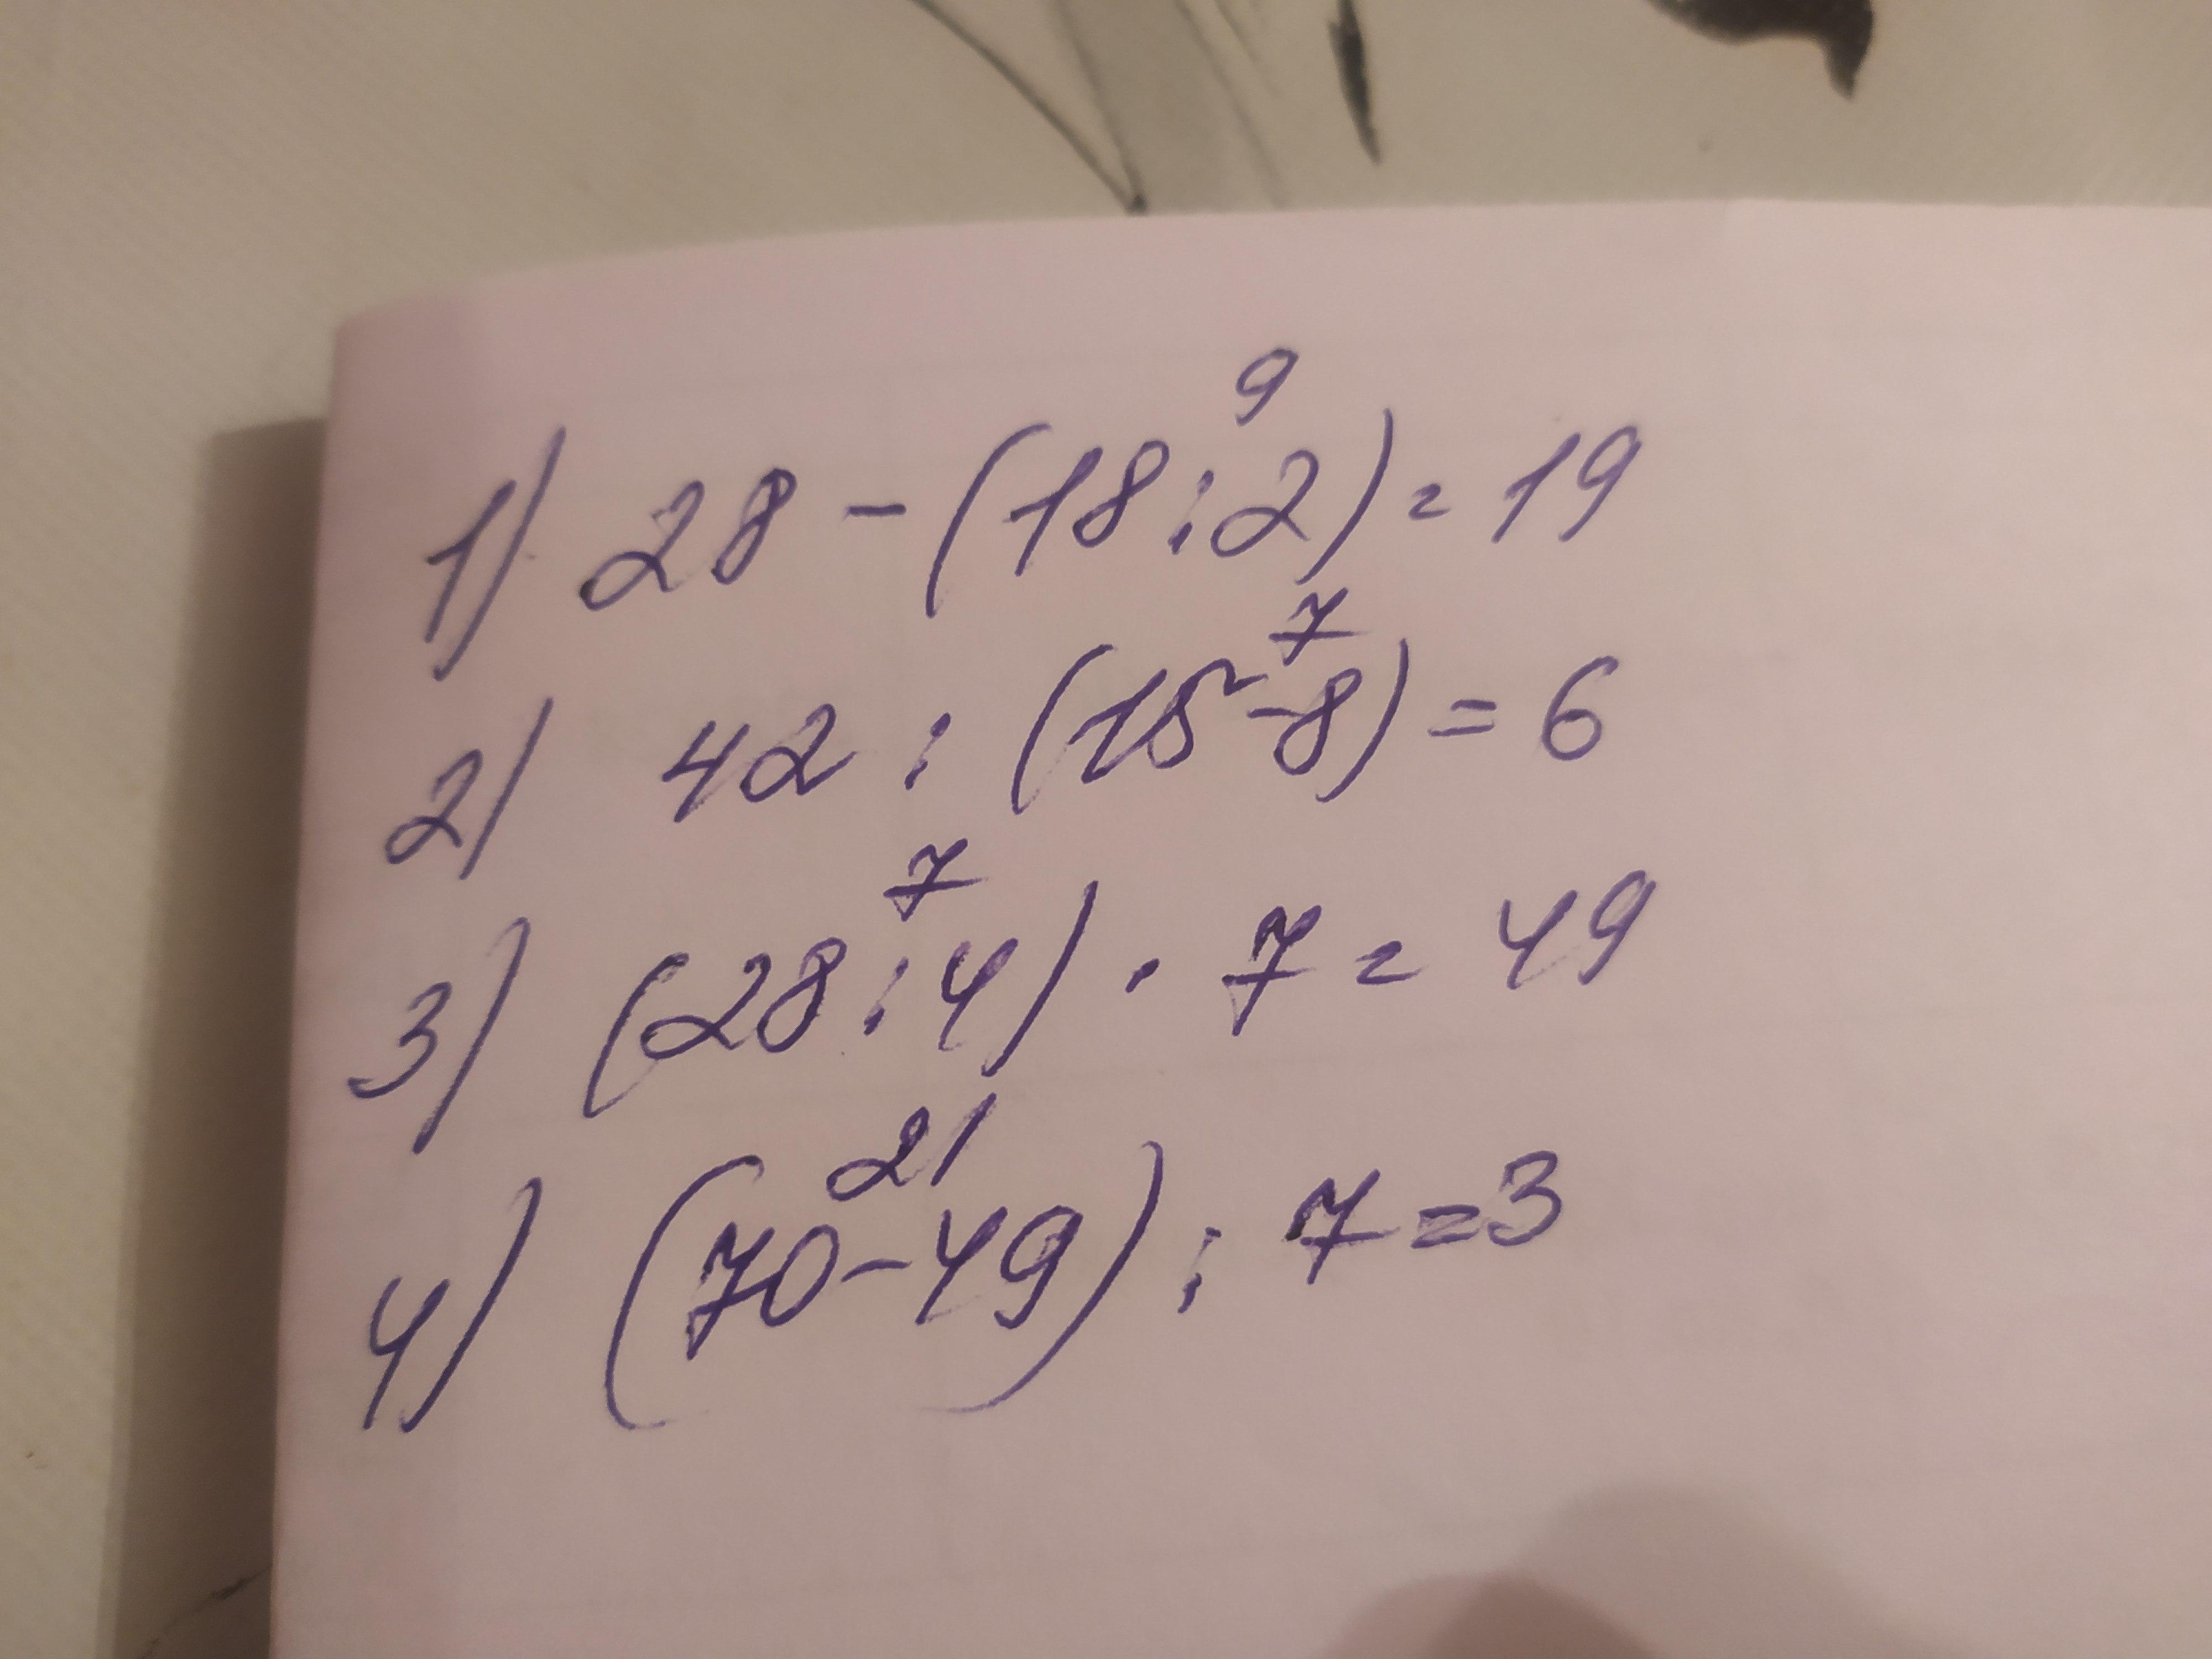 9
1) 28 - (18 : 2) = 19
7
2) 42 : (15 - 8) = 6
7
3) (28 : 4) · 7 = 49
21
4) (70 - 49) : 7 = 3